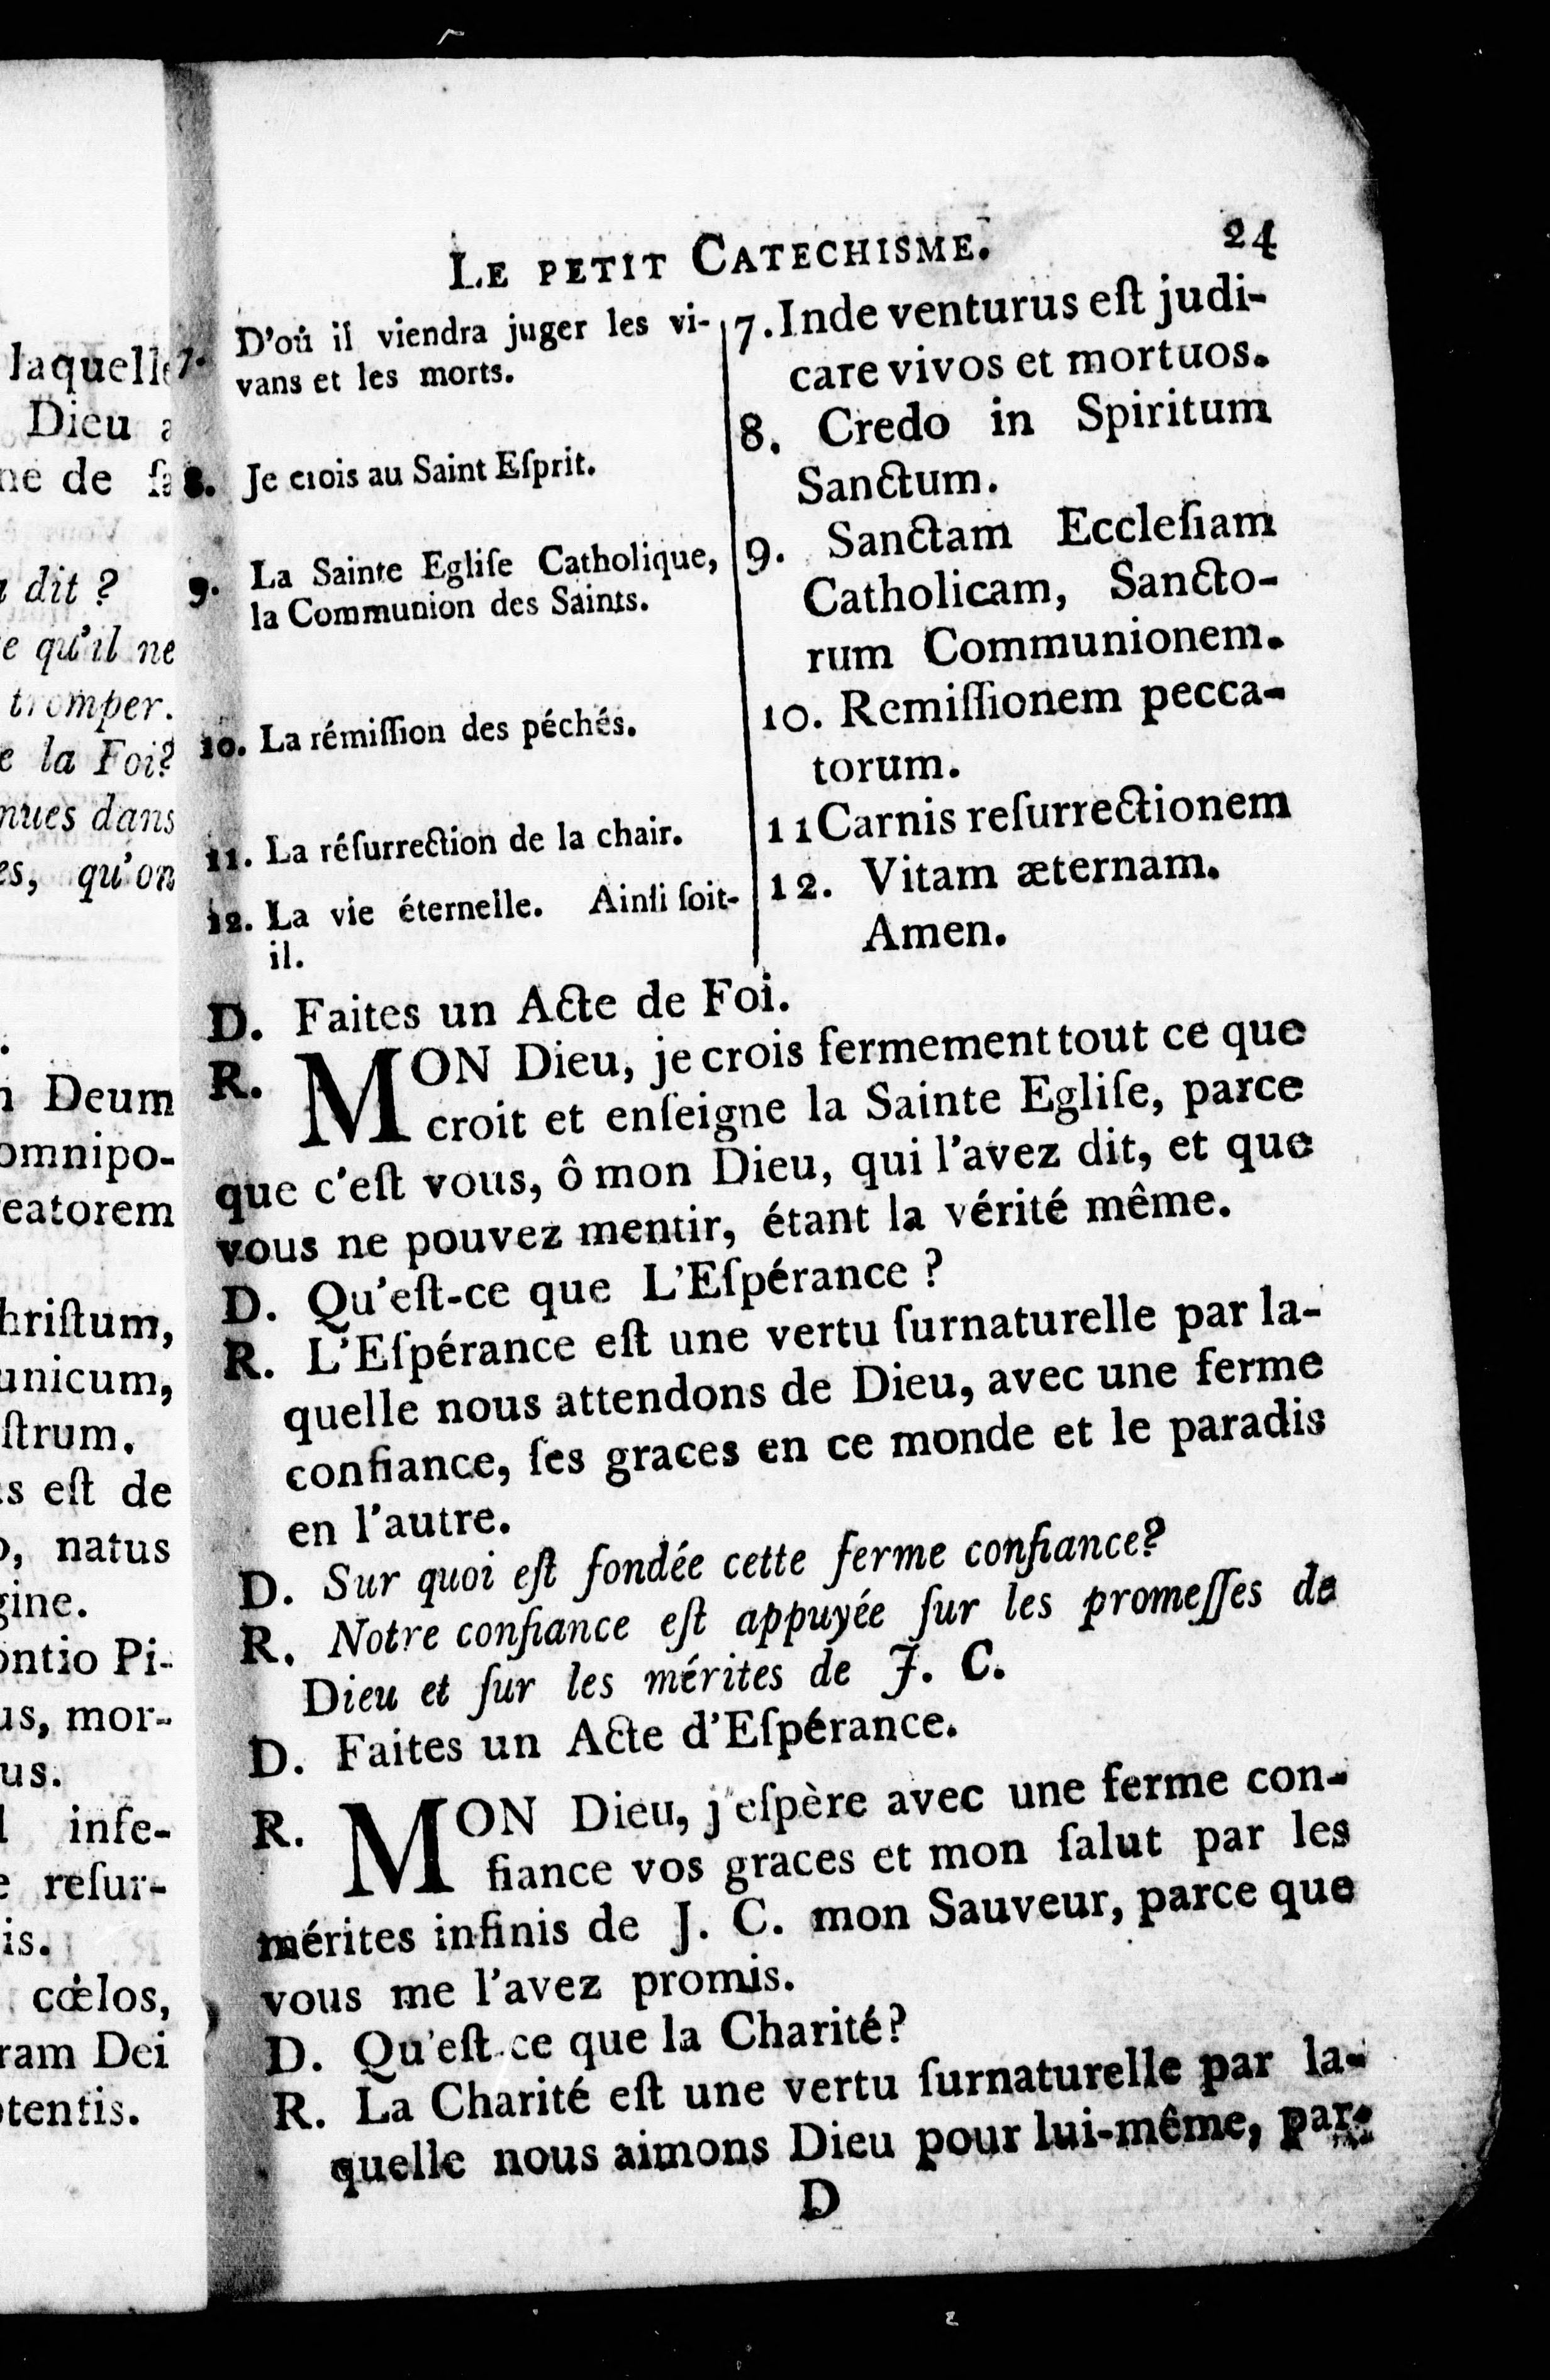 laquelle
Dieu a
ne de ſa
dit ?
e qu'il ne
tromper.
e la Foi?
nues dans
es, qu'on
Deum
omnipo-
eatorem
hriſtum,
unicum,
ſtrum.
s eſt de
o, natus
gine.
ontio Pi-
us, mor-
us.
infe-
e reſur-
is.
cœlos,
ram Dei
tentis.
LE PETIT CATECHISME. 24
7. D'où il viendra juger les vi-
vans et les morts.
8. Je crois au Saint Eſprit.
9. La Sainte Egliſe Catholique,
la Communion des Saints.
10. La rémiſſion des péchés.
11. La réſurrection de la chair.
12. La vie éternelle. Ainſi ſoit-
il.
7. Inde venturus eſt judi-
care vivos et mortuos.
8. Credo in Spiritum
Sanctum.
9. Sanctam Eccleſiam
Catholicam, Sancto-
rum Communionem.
10. Remiſſionem pecca-
torum.
11 Carnis reſurrectionem
12. Vitam æternam.
Amen.
D. Faites un Acte de Foi.
R. MON Dieu, je crois fermement tout ce que
croit et enſeigne la Sainte Egliſe, parce
que c'eſt vous, ô mon Dieu, qui l'avez dit, et que
vous ne pouvez mentir, étant la vérité même.
D. Qu'eſt-ce que L'Eſpérance ?
R. L'Eſpérance eſt une vertu ſurnaturelle par la-
quelle nous attendons de Dieu, avec une ferme
confiance, ſes graces en ce monde et le paradis
en l'autre.
D. Sur quoi eſt fondée cette ferme confiance?
R. Notre confiance eſt appuyée ſur les promeſſes de
Dieu et ſur les mérites de J. C.
D. Faites un Acte d'Eſpérance.
R. MON Dieu, j'eſpère avec une ferme con-
fiance vos graces et mon ſalut par les
mérites infinis de J. C. mon Sauveur, parce que
vous me l'avez promis.
D. Qu'eſt-ce que la Charité?
R. La Charité eſt une vertu ſurnaturelle par la-
quelle nous aimons Dieu pour lui-même, par-
D